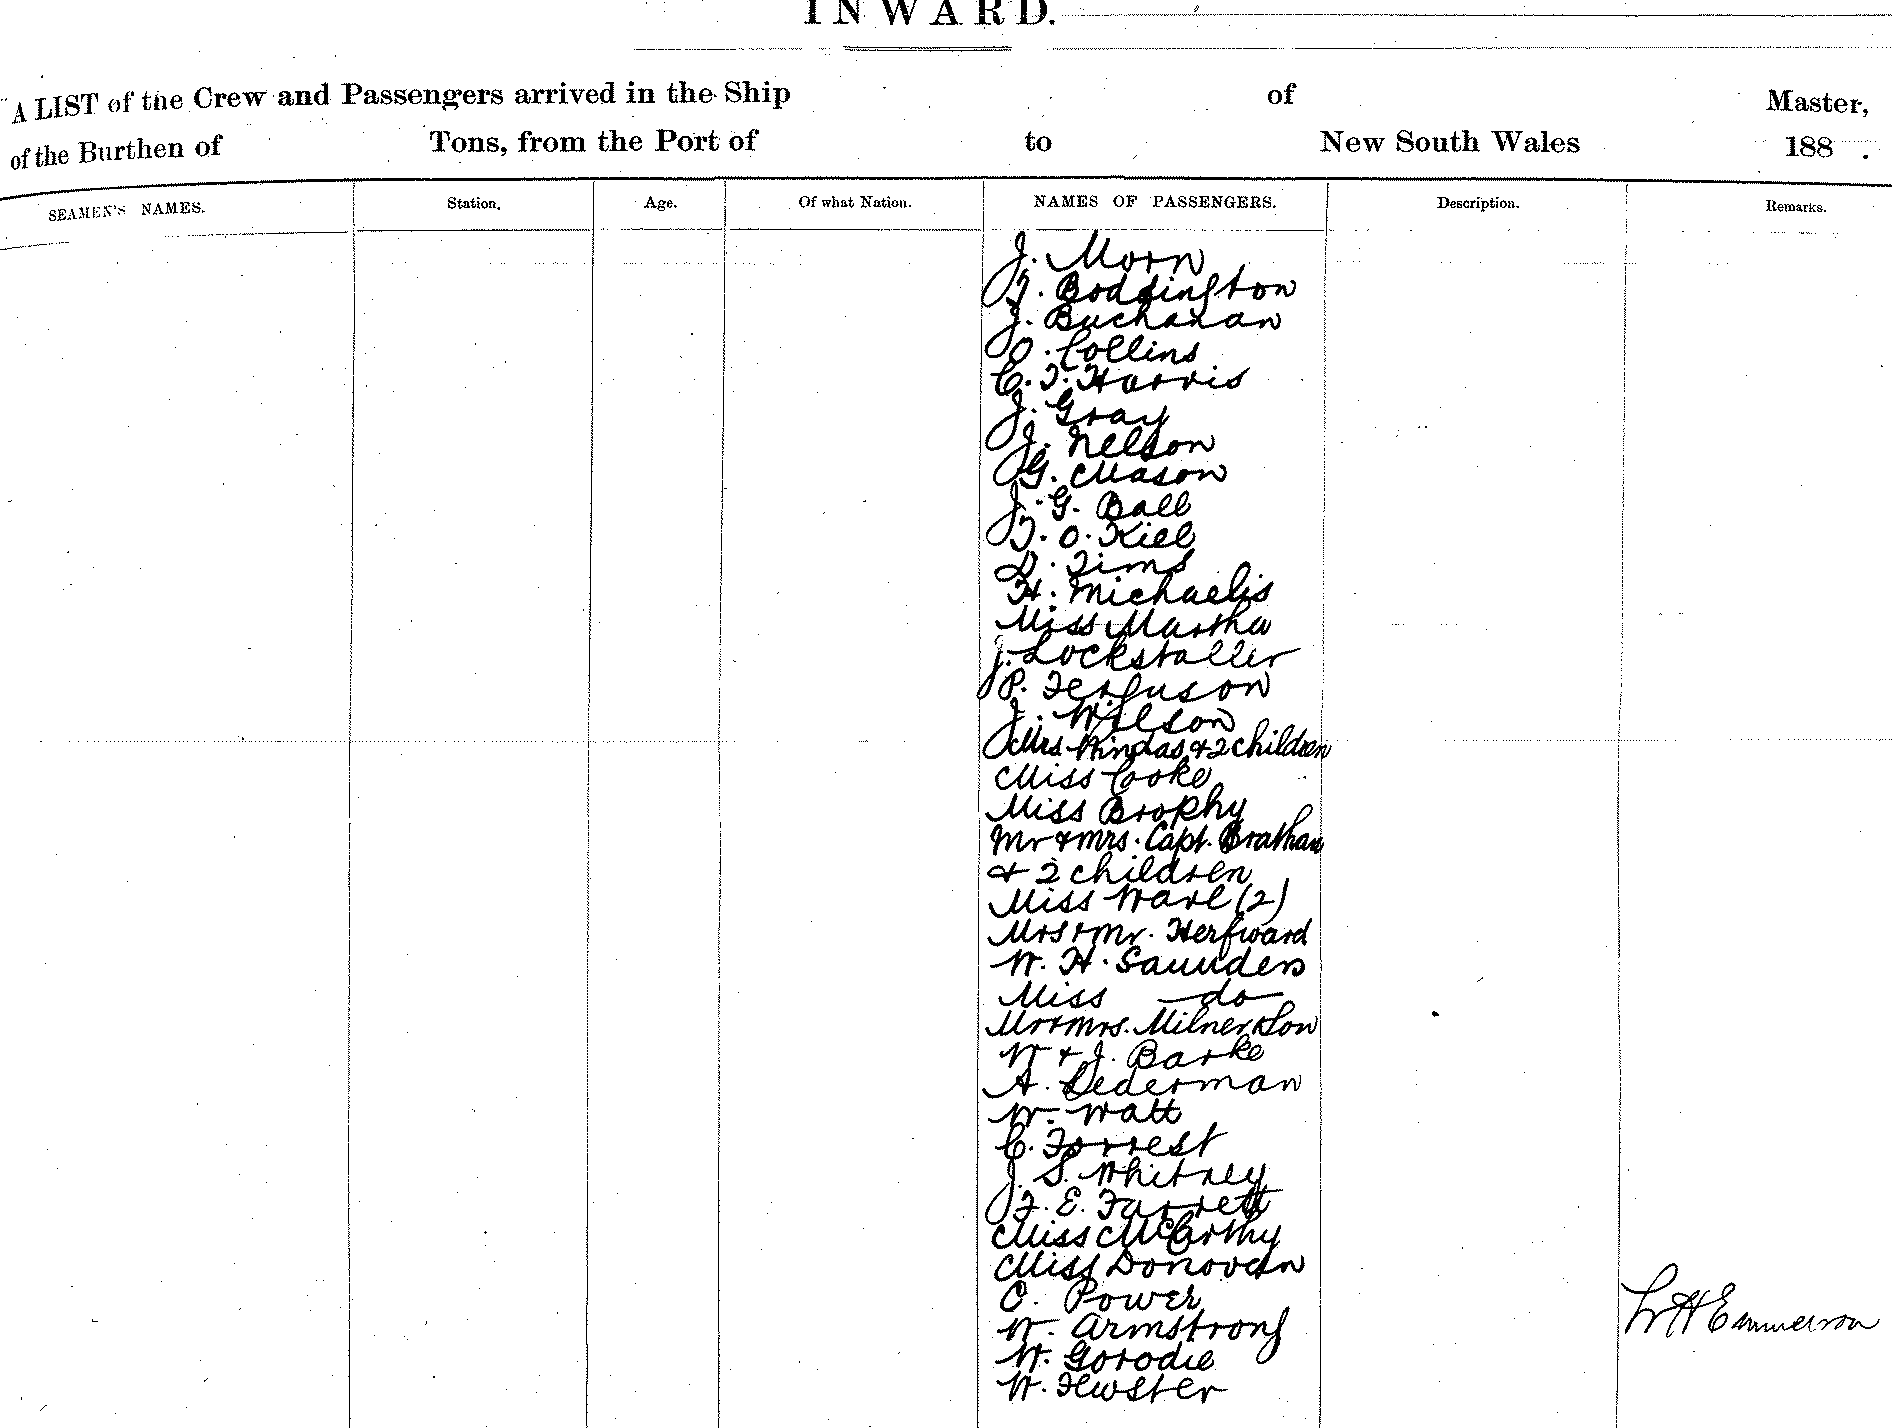 INWARD.
A LIST of the Crew and Passengers arrived in the Ship of Master,
of the Burthen of Tons, from the Port of to New South Wales 188 .
SEAMEN'S NAMES. Station. Age. Of what Nation. NAMES OF PASSENGERS. Description. Remarks.
J. Morn
J. Boddington
J. Buchanan
O. Collins
C. F. Harris
J. Gray
J. Nelson
G. Mason
J. G. Ball
J. O. Kiel
D. Tims
H. Michaelis
Miss Martha
J. Lockstaller
P. Ferguson
J. Wilson
Mrs. Windas & 2 children
Miss Cooke
Miss Brophy
Mr & Mrs. Capt. Brathan
& 2 children
Miss Ware (2)
Mrs & Mr. Herfward
W. H. Saunders
Miss do
Mr & Mrs. Milner & Son
W & J. Barke
A. Lederman
W. Watt
C. Forrest
J. S. Whitney
F. E. Farrett
Miss McCarthy
Miss Donovan
O. Power
W. Armstrong
W. Gorodie
W. Hewster
W H Emmerson